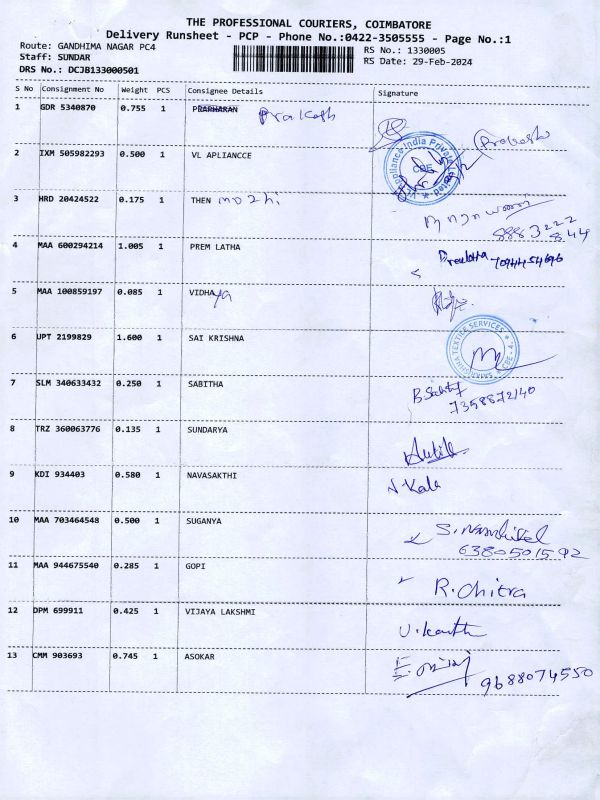 THE PROFESSIONAL COURIERS, COIMBATORE
Delivery Runsheet - PCP - Phone No.:0422-3505555 - Page No.:1
Route: GANDHIMA NAGAR PC4
RS No.: 1330005
Staff: SUNDAR
RS Date: 29-Feb-2024
DRS No.: DCJB133000501
S No Consignment No Weight PCS Consignee Details Signature
1 GDR 5340870 0.755 1 Prakash
Prakash
2 IXM 505982293 0.500 1 VL APLIANCCE
Appliance India Private Limited
CBE
3 HRD 20424522 0.175 1 THEN mozhi
8883222
844
4 MAA 600294214 1.005 1 PREM LATHA
7094454696
5 MAA 100859197 0.085 1 VIDHAya
6 UPT 2199829 1.600 1 SAI KRISHNA
TEXTILE SERVICES
CBE - 4
7 SLM 340633432 0.250 1 SABITHA
7358872140
8 TRZ 360063776 0.135 1 SUNDARYA
9 KDI 934403 0.580 1 NAVASAKTHI
Kala
10 MAA 703464548 0.500 1 SUGANYA
6380501592
11 MAA 944675540 0.285 1 GOPI
R. Chitra
12 DPM 699911 0.425 1 VIJAYA LAKSHMI
13 CMM 903693 0.745 1 ASOKAR
9688074550